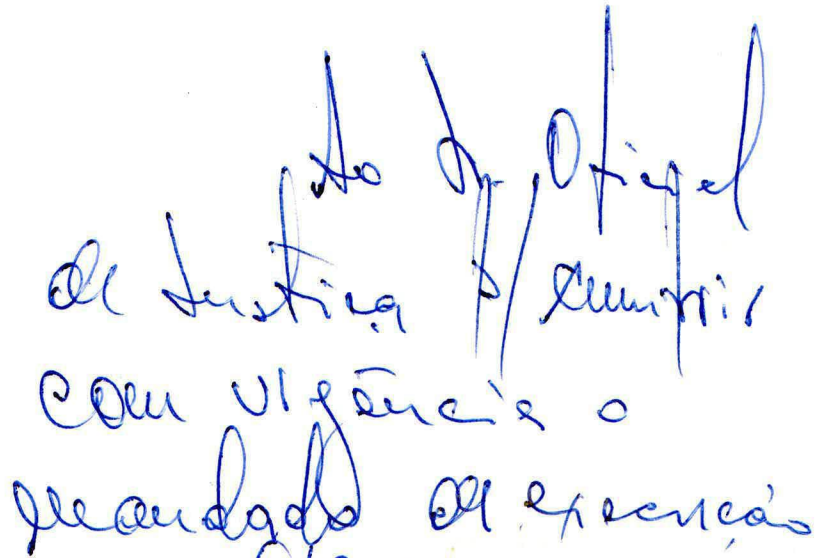 Ao Sr. Oficial
de Justiça p/ cumprir
com urgência o
mandado de execução